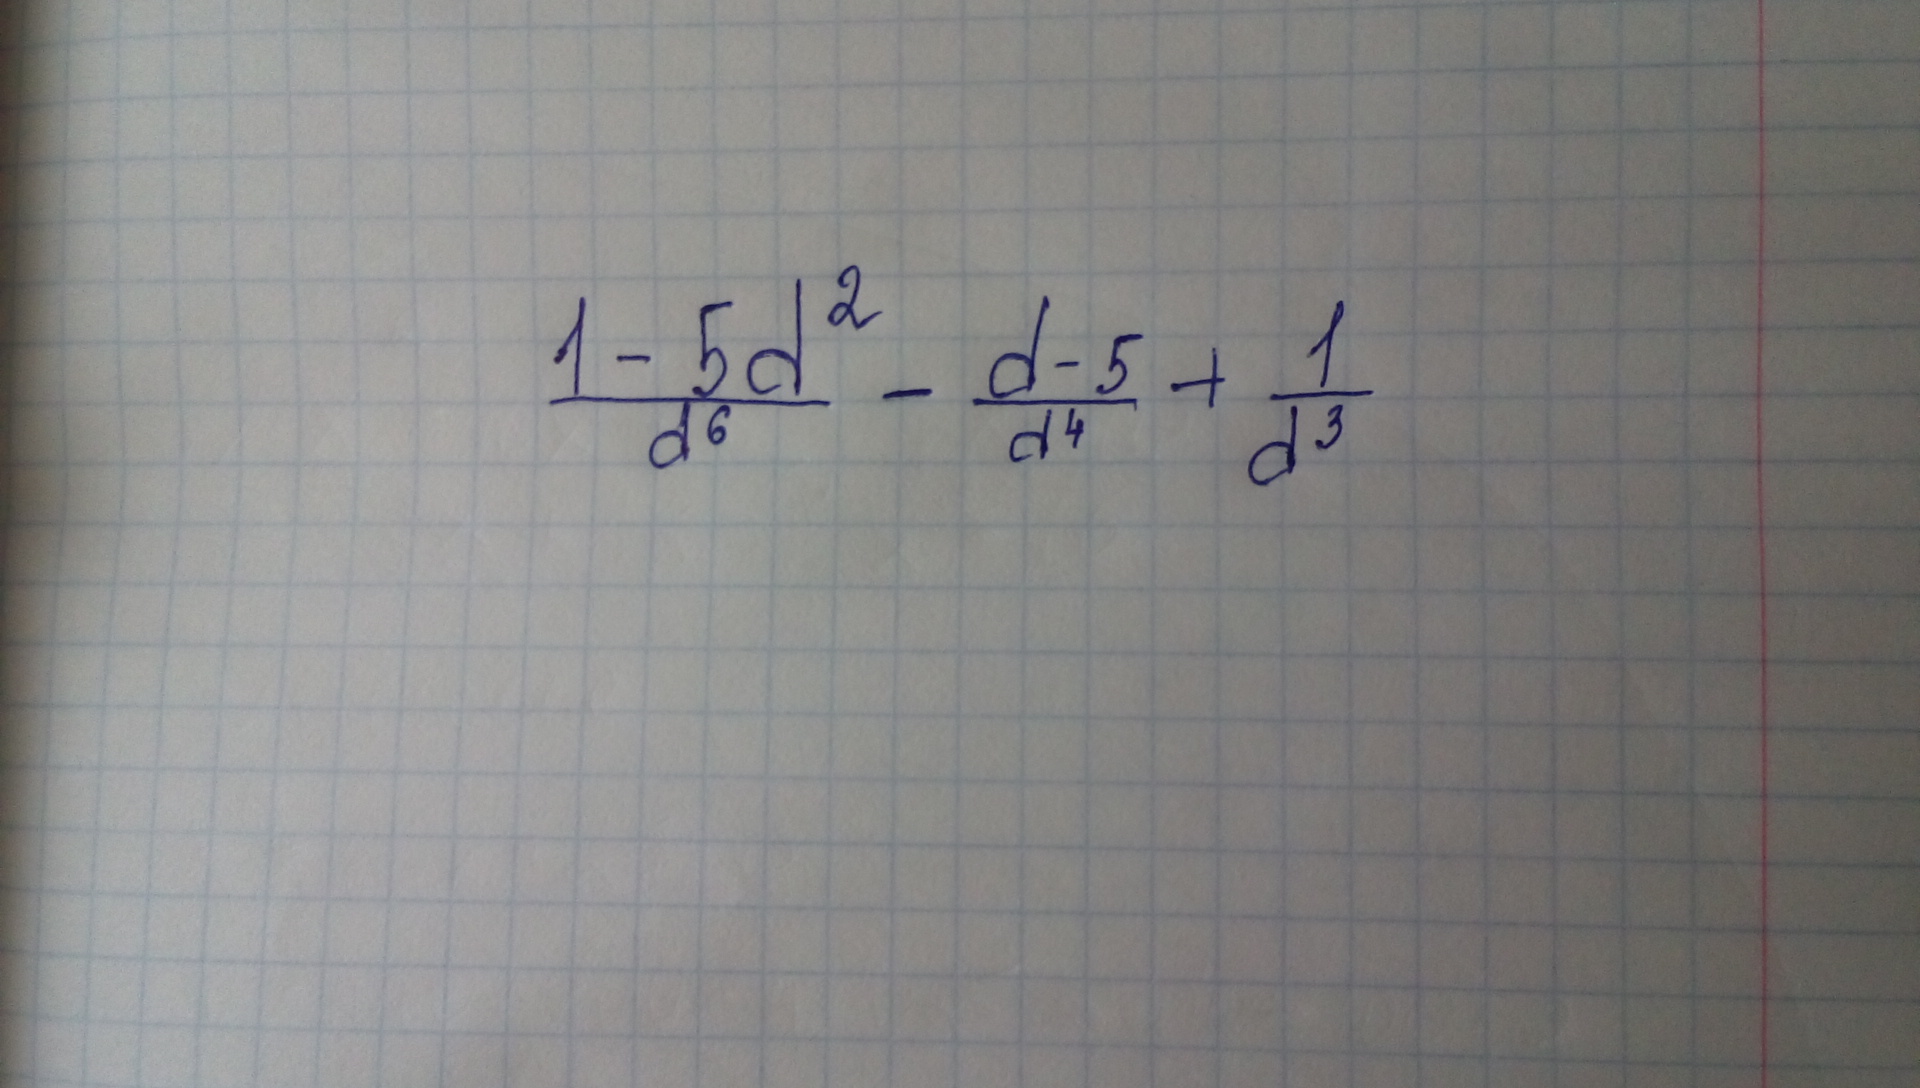 (1 - 5d²)/d⁶ - (d - 5)/d⁴ + 1/d³